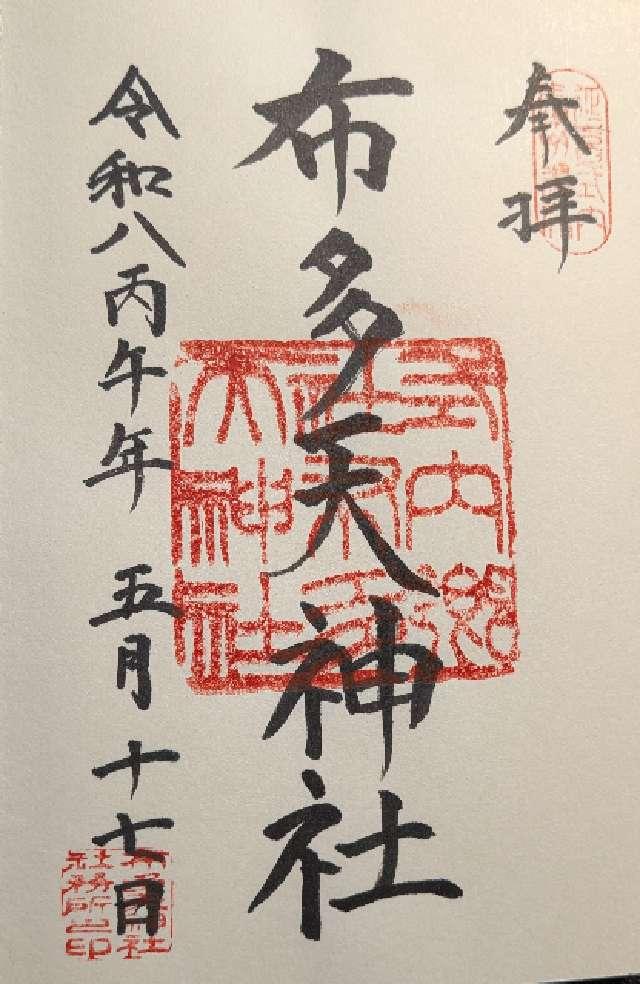 奉拝
布多天神社
令和八丙午年 五月十七日
式内郷
社布多
天神社
布多天神社
社務所之印